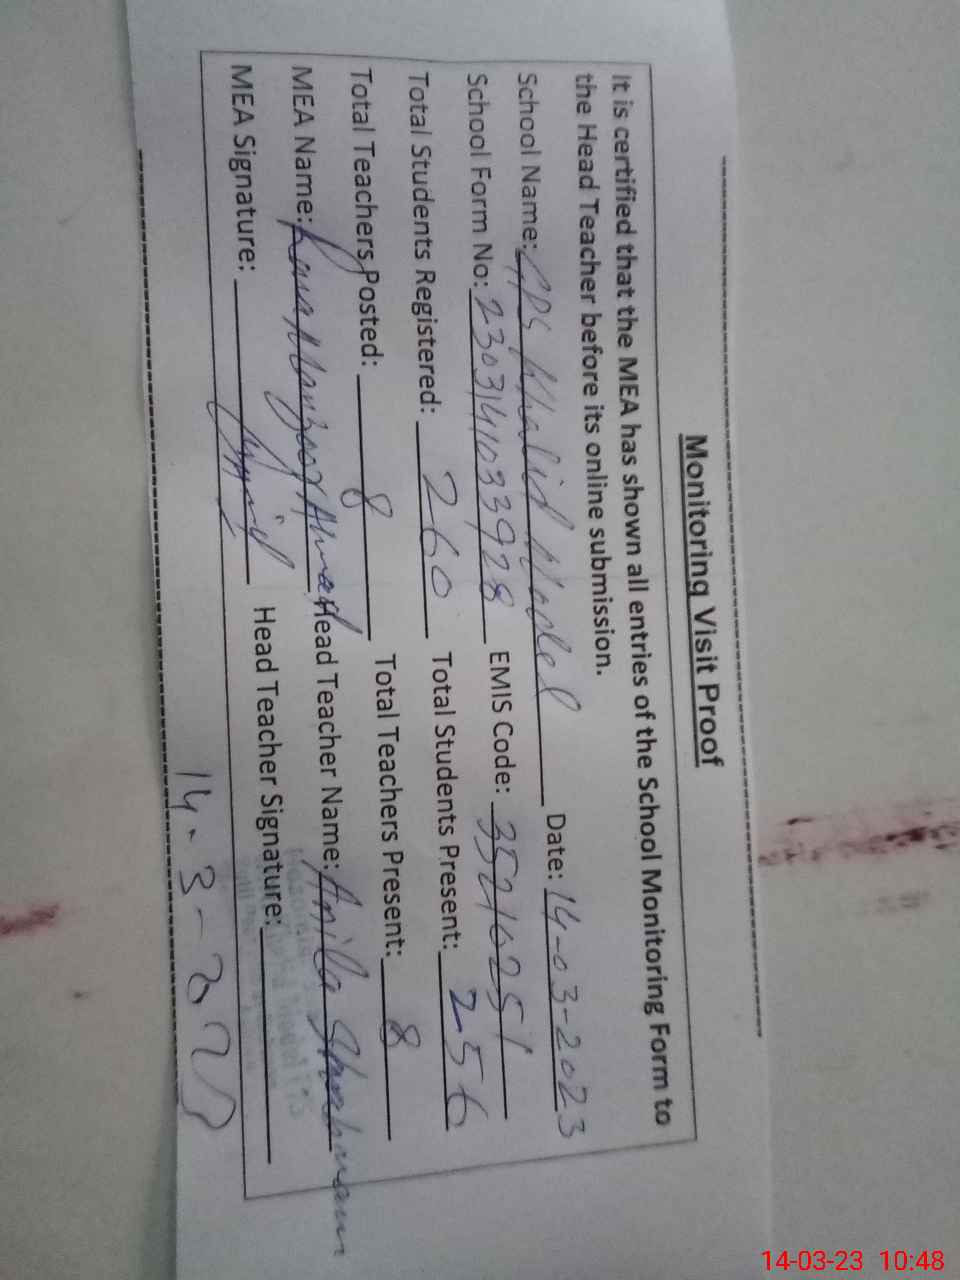 Monitoring Visit Proof
It is certified that the MEA has shown all entries of the School Monitoring Form to
the Head Teacher before its online submission.
School Name: GPS Khalid Model Date: 14-03-2023
School Form No: 2303141033928 EMIS Code: 35210251
Total Students Registered: 260 Total Students Present: 256
Total Teachers Posted: 8 Total Teachers Present: 8
MEA Name: Rana Manzoor Ahmad Head Teacher Name: Anila Shabnam
MEA Signature: Head Teacher Signature:
14-3-2023
14-03-23 10:48